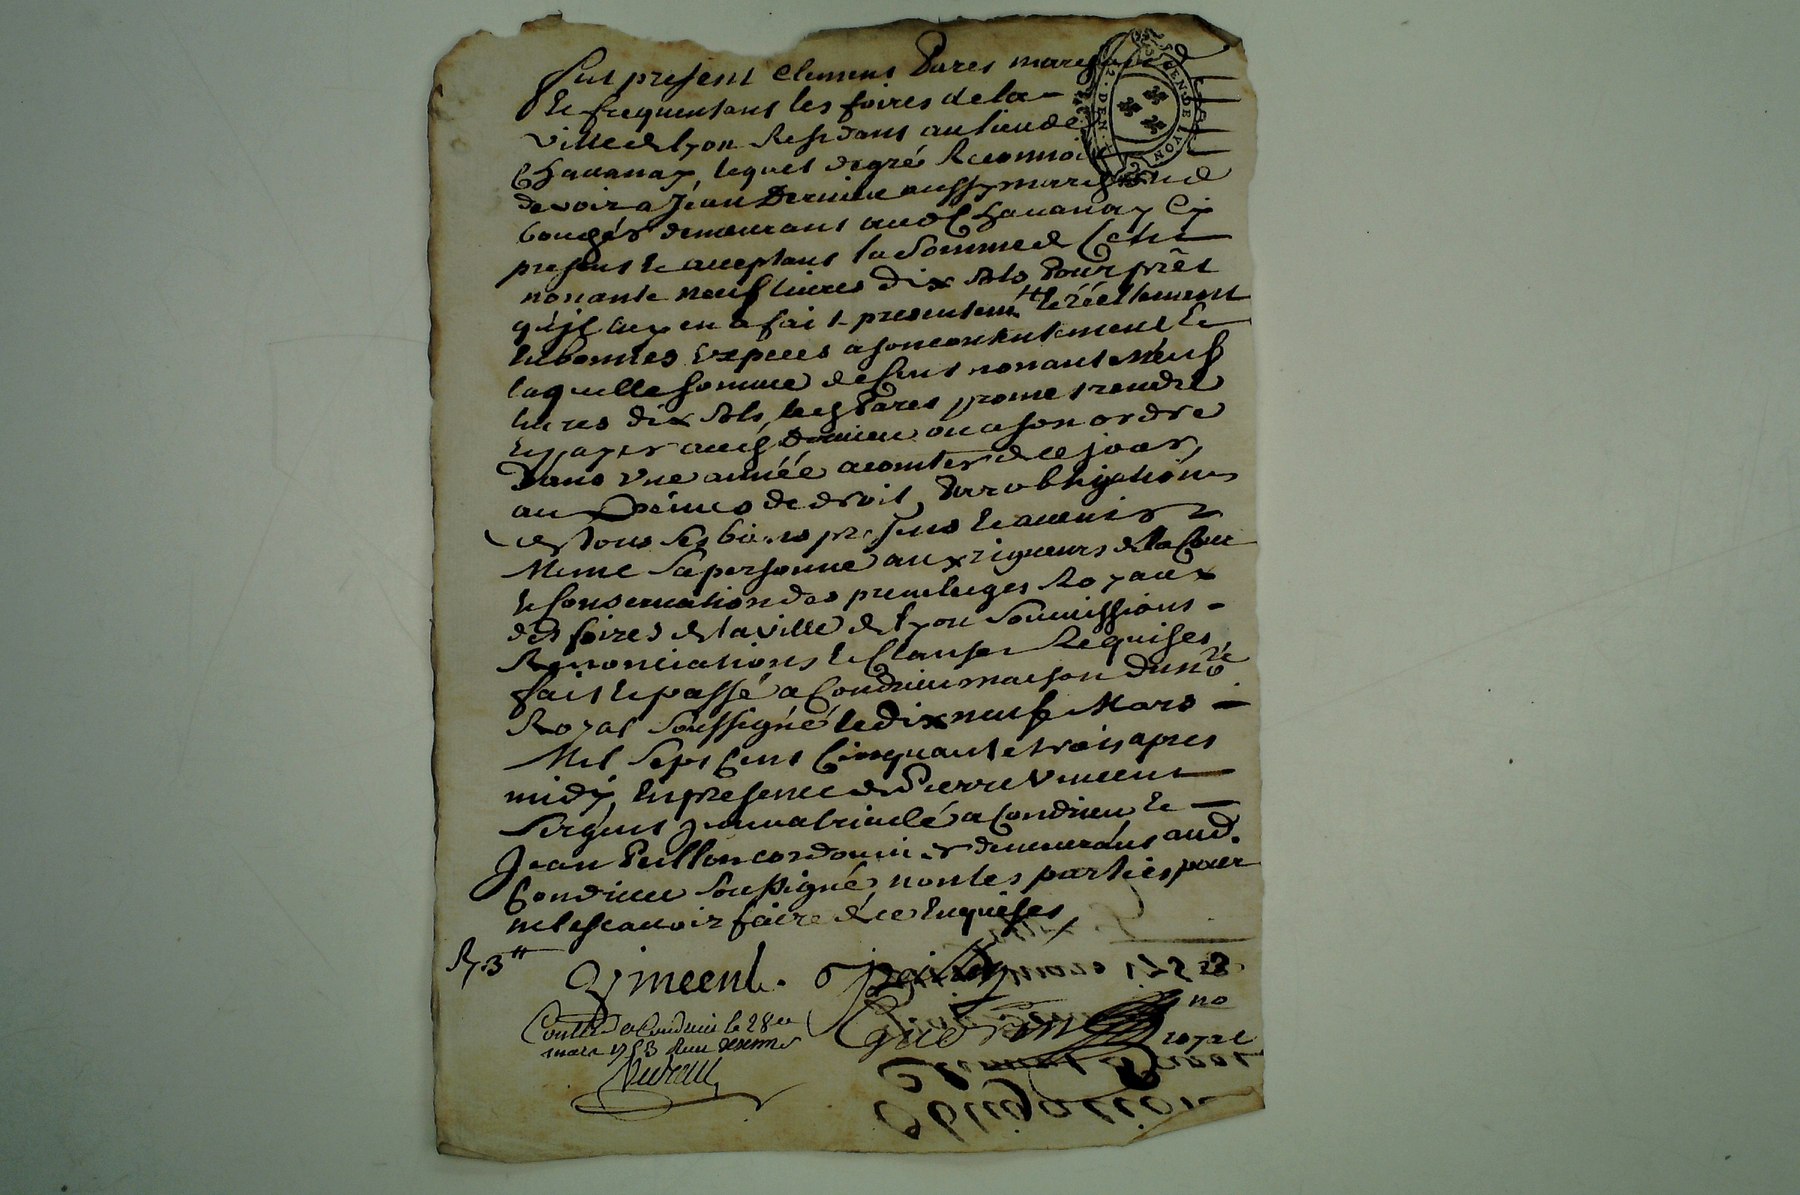 Fut present Clemens Pares marchand
et frequentans les foires de la
ville de lyon Residant au lieu de
Chauanay, lequel de gré Reconnoi
devoir a Jean Dernieu aussy marchand
demeurant aud Chauanay Cy
present et acceptant la Somme de Cent
nonante neuf liures dix sols pour prêt
qu'jl luy en a fait presentemt et réellement
en bonnes especes a son contentement et
laquelle somme de Cent nonante neuf
liures dix sols, led Pares promet rendre
et payer aud Dernieu ou a son ordre
Dans vne année a comter de ce jour,
aux peines de droit, Par obligation
de tous ses biens presens et auenir
Meme sa personne aux rigueurs de la Cour
et Conseruation des priuileges Royaux
des foires de la ville de lyon Soumissions
Renonciations et Clauses Requises,
fait et passé a Condrieu maison du nore
Royal soussigné le dix neuf Mars
Mil Sept Cent Cinquante trois apres
midy, En presence de Pierre Vincent
Sergent jmmatriculé a Condrieu et
Jean cordonnier demeurans aud.
Condrieu soussigné, non les parties pour
ne le scauoir faire de ce Enquises,
R 3 tt
Vincent.
mars 1753
no
Conllé a Condrieu le 28e
mars 1753 Reçu
royal
Clement Pares
Obligation
12 DEN.
GEN. DE LYON